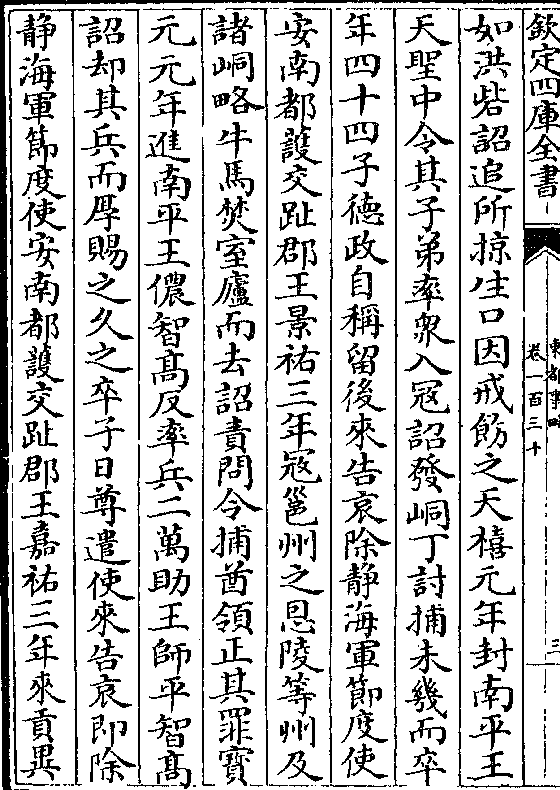 欽定四庫全書
東都事略
卷一百三十
三
如洪砦詔追所掠生口因戒飭之天禧元年封南平王
天聖中令其子弟率衆入冦詔發峒丁討捕未幾而卒
年四十四子德政自稱留後來告哀除静海軍節度使
安南都護交趾郡王景祐三年冦邕州之思陵等州及
諸峒略牛馬焚室廬而去詔責問令捕酋領正其罪寶
元元年進南平王儂智髙反率兵二萬助王師平智髙
詔却其兵而厚賜之久之卒子日尊遣使來告哀即除
静海軍節度使安南都護交趾郡王嘉祐三年來貢異